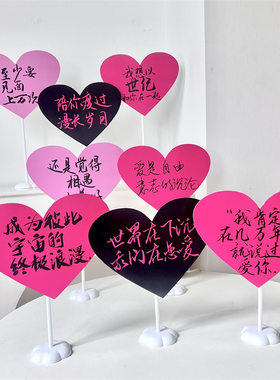 至少要
见面
上万次
我想以
世纪
和你在一起
陪你度过
漫长岁月
还是觉得
相遇
爱是自由
意志的沉沦
成为彼此
宇宙的
终极浪漫
世界在下沉
我们在恋爱
“我肯定
在几百年前
就说过
爱你